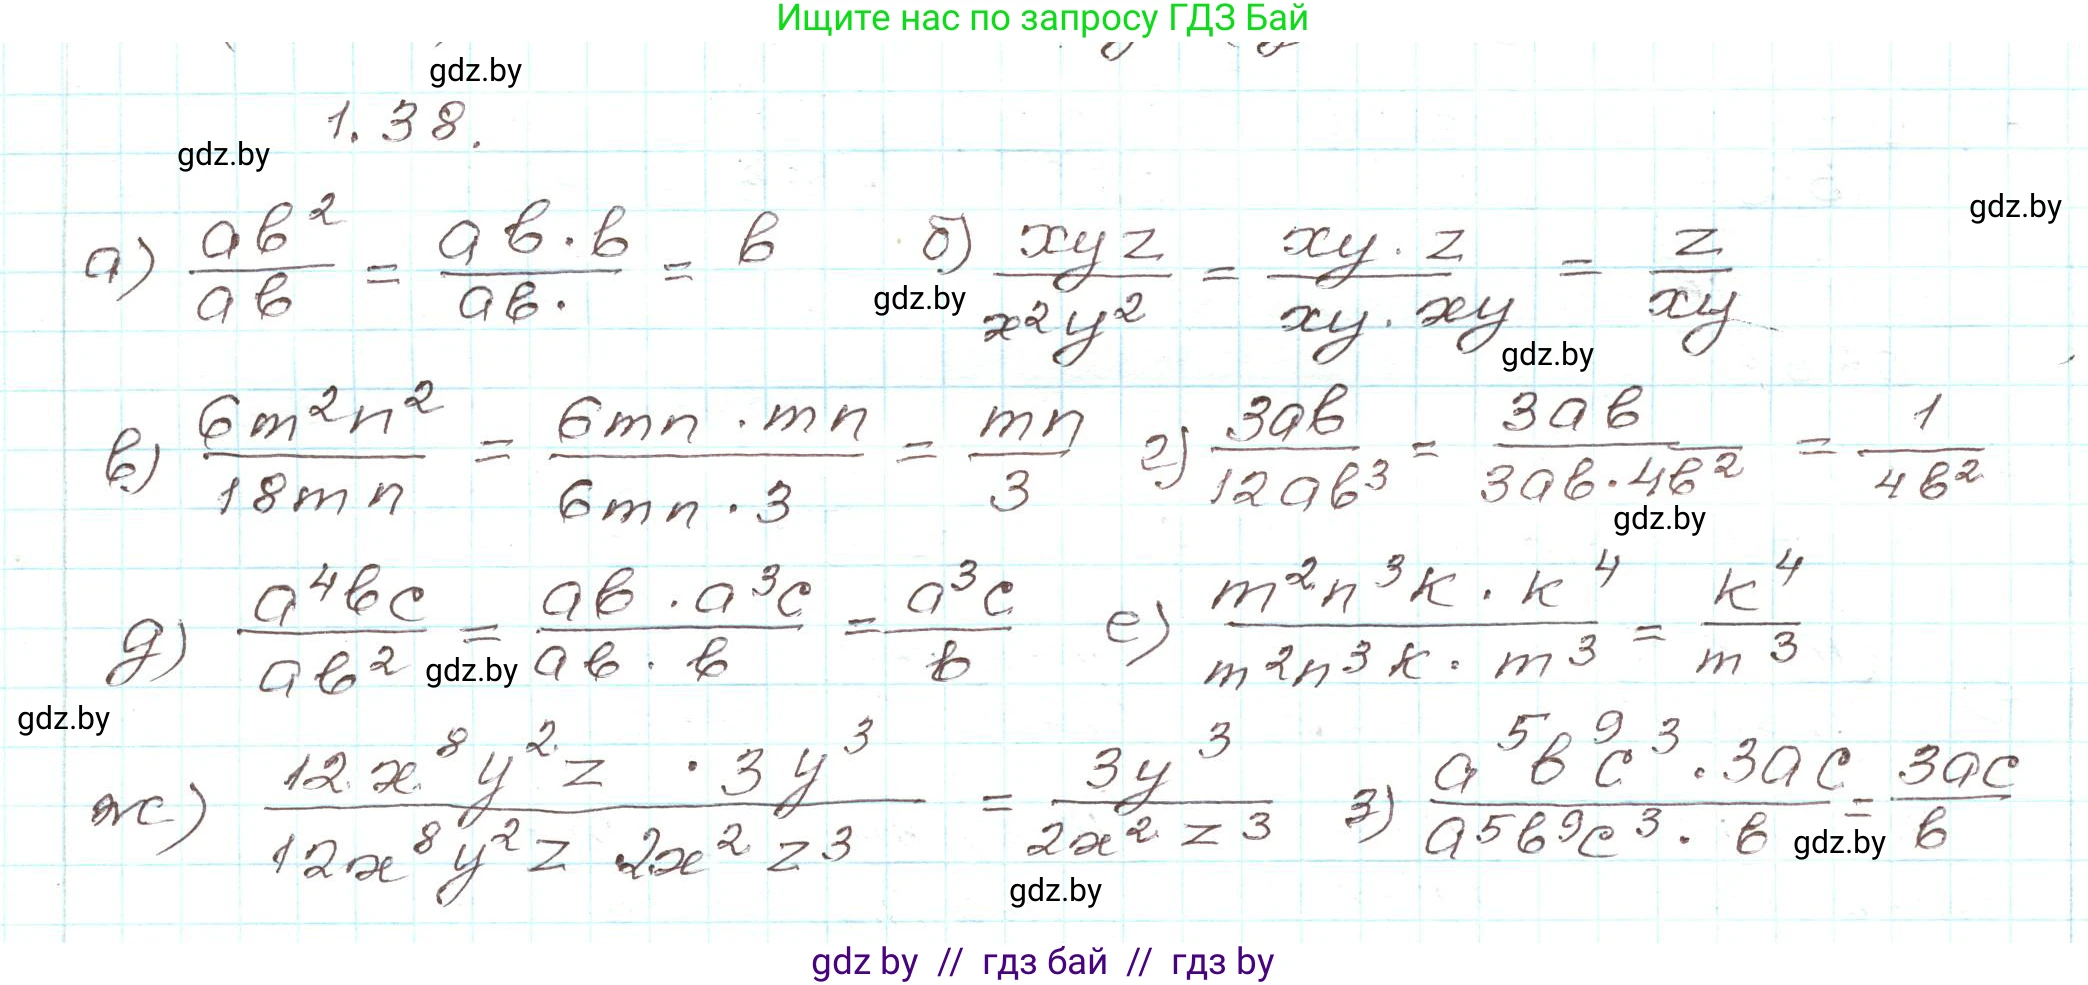 Ищите нас по запросу ГДЗ Бай
gdz.by
1.38.
gdz.by
gdz.by
а) ab²/ab = ab·b/ab· = b б) xyz/x²y² = xy·z/xy·xy = z/xy
gdz.by
gdz.by
в) 6m²n²/18mn = 6mn·mn/6mn·3 = mn/3 г) 3ab/12ab³ = 3ab/3ab·4b² = 1/4b²
gdz.by
д) a⁴bc/ab² = ab·a³c/ab·b = a³c/b е) m²n³k·k⁴/m²n³k·m³ = k⁴/m³
gdz.by
gdz.by
ж) 12x⁸y²z·3y³/12x⁸y²z·2x²z³ = 3y³/2x²z³ з) a⁵b⁹c³·3ac/a⁵b⁹c³·b = 3ac/b
gdz.by
gdz.by
gdz by // гдз бай // гдз by